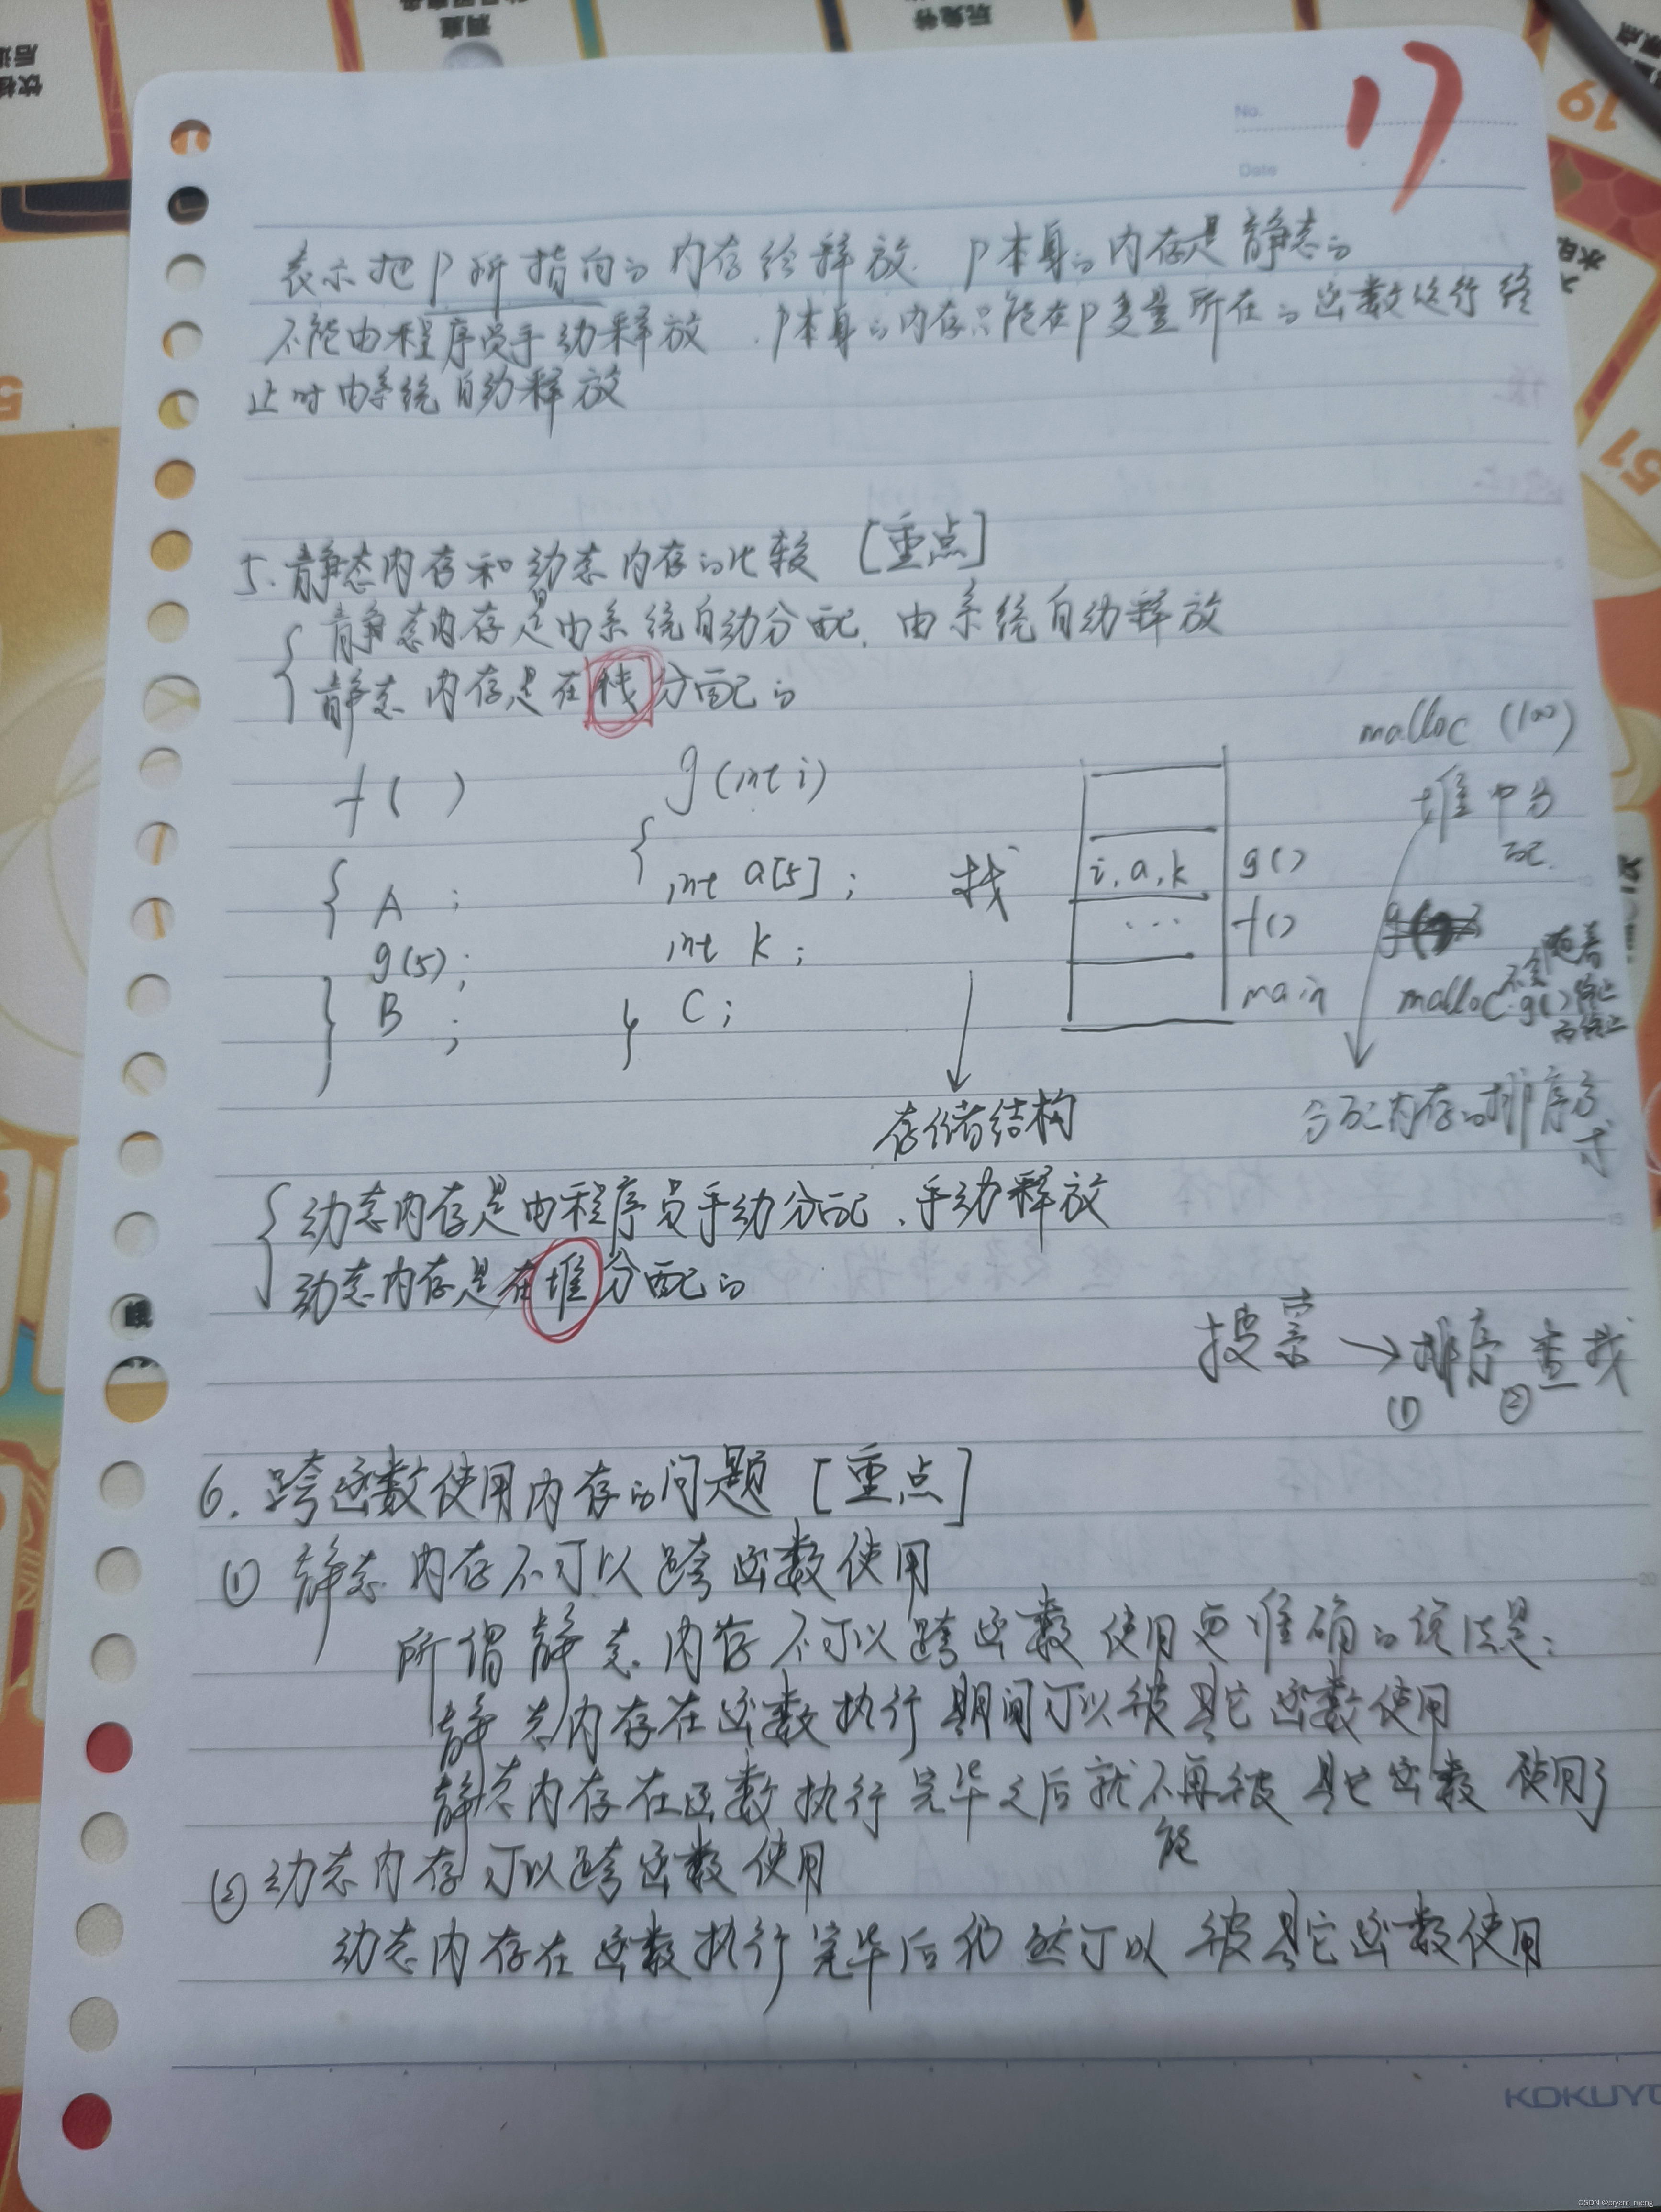 17
No.
Date
表示把p所指向的内存给释放. p本身的内存是静态的
不能由程序员手动释放. p本身的内存只能在p变量所在的函数运行终
止时由系统自动释放
5. 静态内存和动态内存的比较 [重点]
静态内存是由系统自动分配, 由系统自动释放
静态内存是在栈分配的
f( )
{ A ;
g(5);
B ;
}
g(int i)
{
int a[5];
int k;
C;
}
栈
存储结构
i, a, k g()
... f()
main
malloc (100)
堆中分
配.
malloc 不会随着
g()终止
而终止
分配内存的排序方
式
动态内存是由程序员手动分配, 手动释放
动态内存是在堆分配的
搜索 → 排序 查找
① ②
6. 跨函数使用内存的问题 [重点]
① 静态内存不可以跨函数使用
所谓静态内存不可以跨函数使用更准确的说法是:
静态内存在函数执行期间可以被其它函数使用
静态内存在函数执行完毕之后就不再能被其它函数使用了
② 动态内存可以跨函数使用
动态内存在函数执行完毕后仍然可以被其它函数使用
KOKUYO
CSDN @bryant_meng
19
51